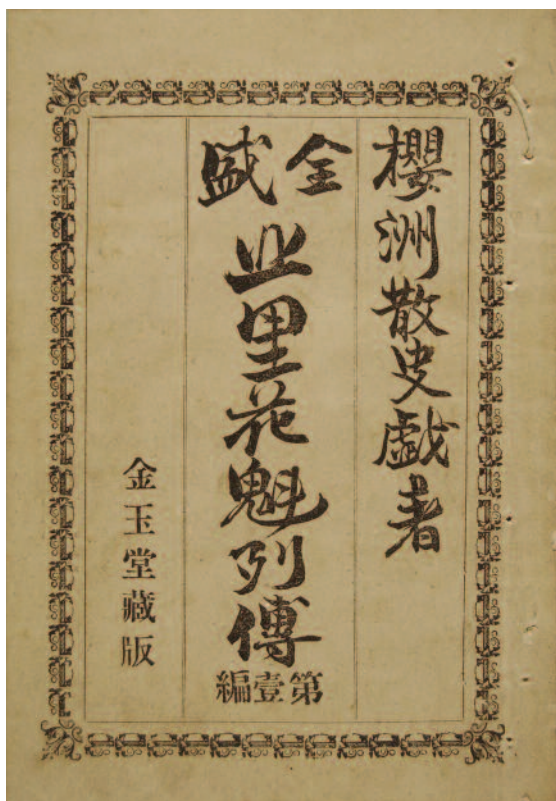 櫻洲散史戯著
全盛
北里花魁列傳
第壹編
金玉堂藏版